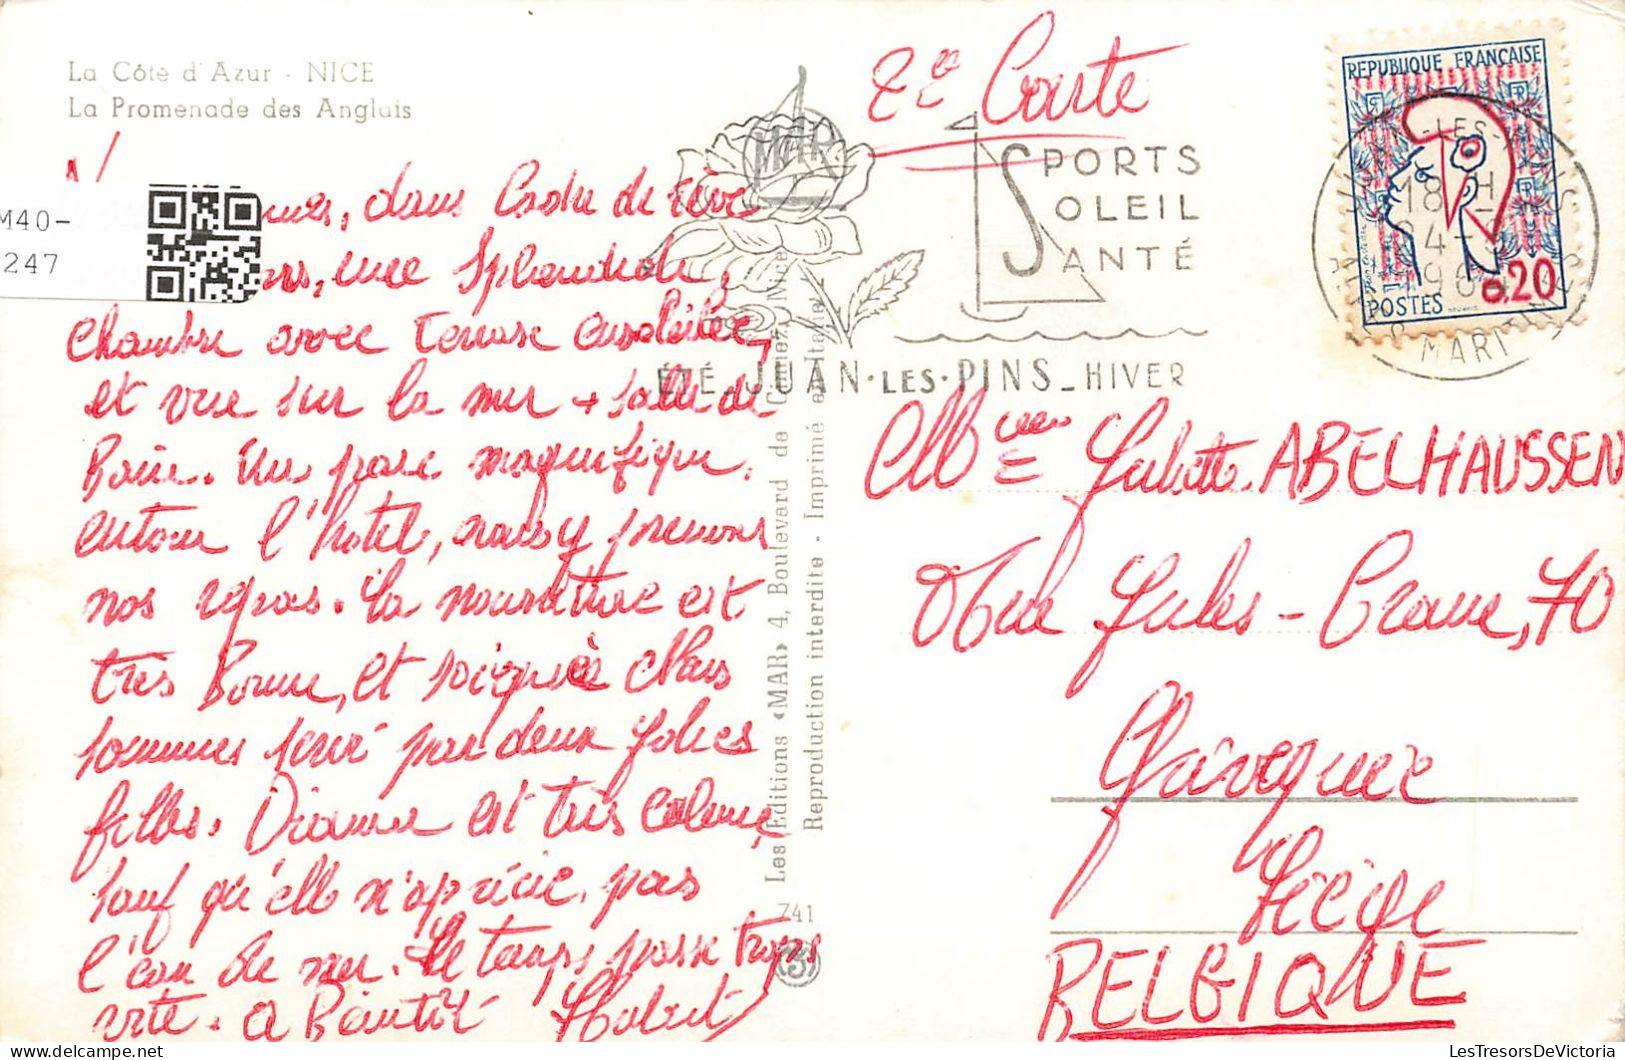 La Côte d'Azur - NICE
La Promenade des Anglais
2e Carte
M40-
247
dans Cadre de rêve
une Splendide
chambre avec terrasse ensoleillée,
et vue sur la mer + salle de
Bain. Un parc magnifique
entour l'hotel, nous y prenons
nos repas. La nourriture est
très Bonne, et soignée Nous
sommes servi par deux jolies
filles. Dianne est très calme,
sauf qu'elle n'apprécie pas
l'eau de mer. Le temps passe trop
vite. a Bientôt Hubert
Les Editions «MAR» 4, Boulevard de Cimiez, Nice
Reproduction interdite - Imprimé en Italie
741
MAR
SPORTS
SOLEIL
SANTÉ
ÉTÉ JUAN-LES-PINS_HIVER
REPUBLIQUE FRANÇAISE
0.20
POSTES
18 H
MARIT
Juliette ABELHAUSSEN
Rue Jules-Crame, 70
Liège
BELGIQUE
LesTresorsDeVictoria
delcampe.net